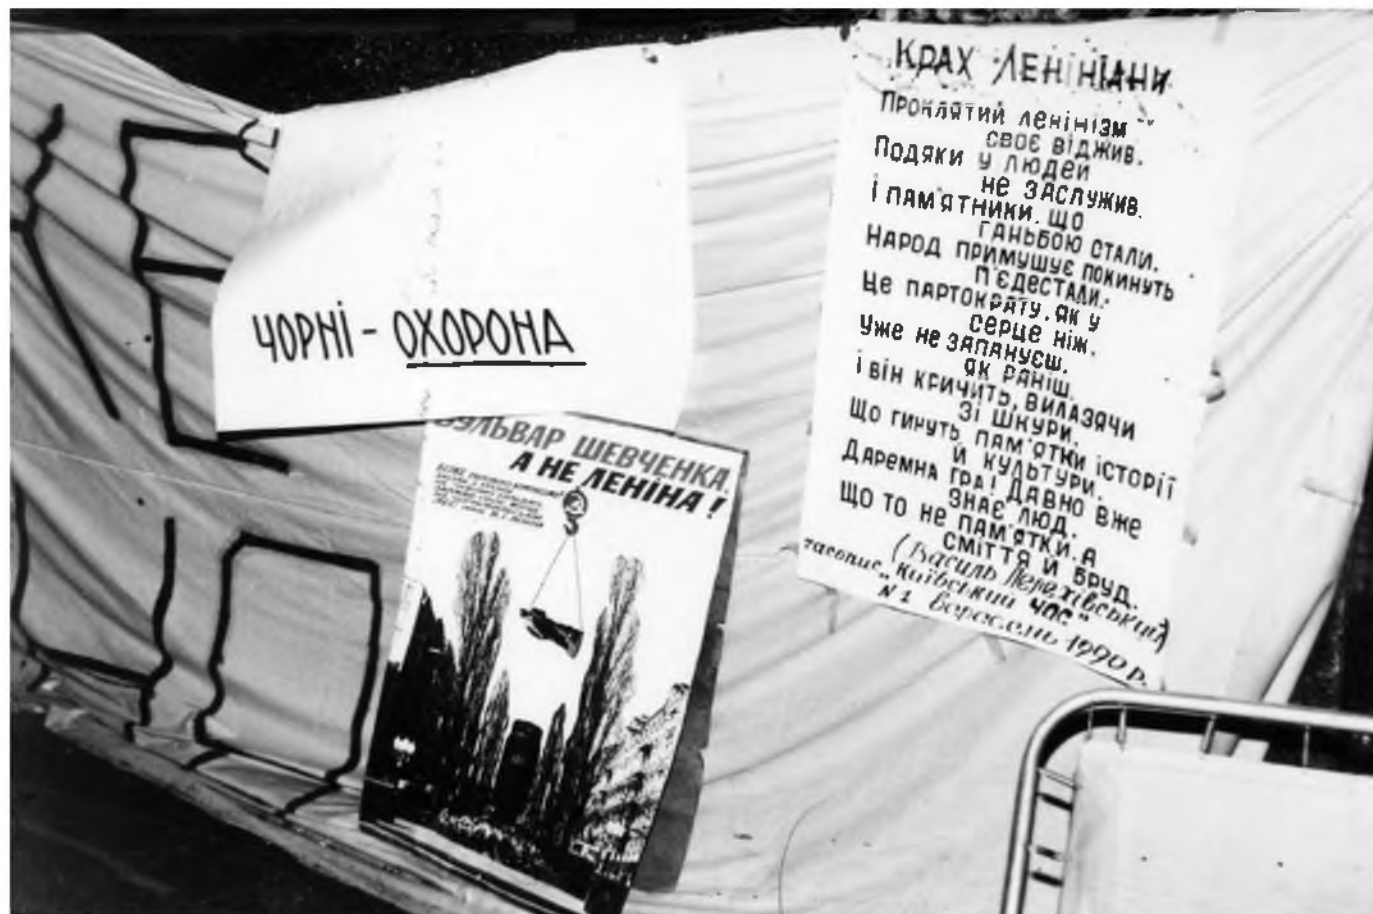 ЧОРНІ - ОХОРОНА
БУЛЬВАР ШЕВЧЕНКА,
А НЕ ЛЕНІНА!
КРАХ ЛЕНІНІАНИ
Проклятий ленінізм
своє віджив.
Подяки у людей
не заслужив.
І пам'ятники, що
ганьбою стали,
Народ примушує покинуть
п'єдестали.
Це партократу, як у
серце ніж.
Уже не запануєш,
як раніш.
І він кричить, вилазячи
зі шкури,
Що гинуть пам'ятки історії
й культури.
Даремна гра! Давно вже
знає люд,
Що то не пам'ятки, а
сміття й бруд.
(Василь Перехівський)
часопис "Київський час"
№ 1 вересень 1990 р.